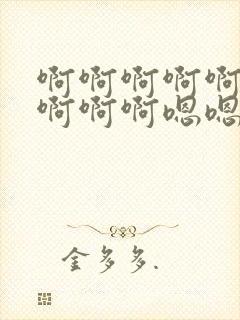 啊啊啊啊啊
啊啊啊嗯嗯
金多多.